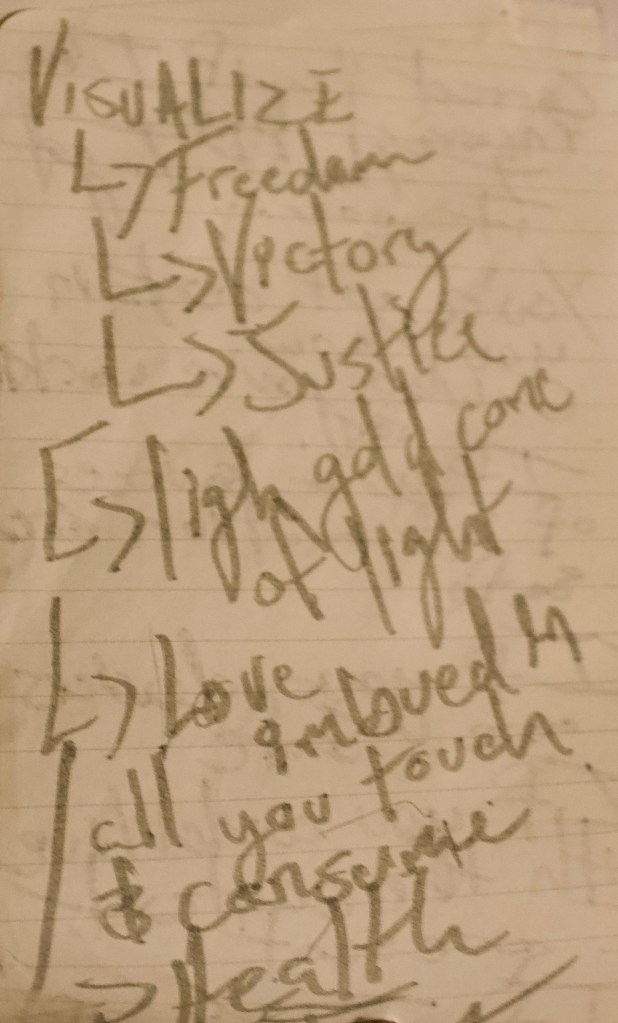 VISUALIZE
↳ Freedom
↳ Victory
↳ Justice
↳ ligh gold cone
of light
↳ Love imbued in
all you touch
& consume
→ Health